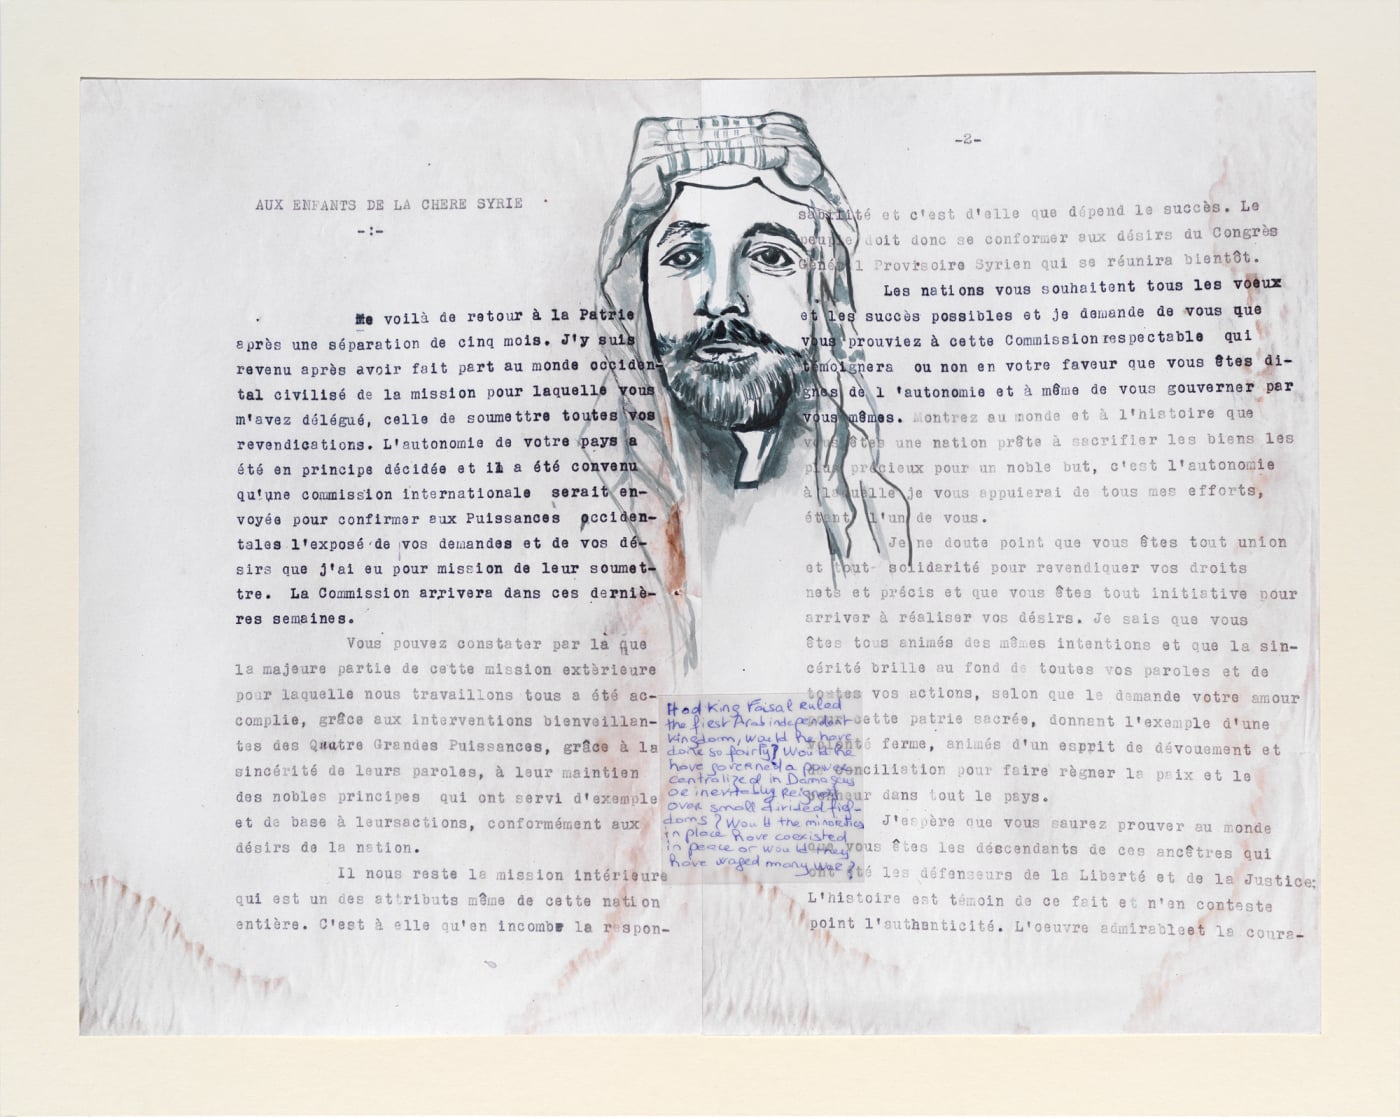 AUX ENFANTS DE LA CHERE SYRIE
-:-
Me voilà de retour à la Patrie
après une séparation de cinq mois. J'y suis
revenu après avoir fait part au monde occiden-
tal civilisé de la mission pour laquelle vous
m'avez délégué, celle de soumettre toutes vos
revendications. L'autonomie de votre pays a
été en principe décidée et il a été convenu
qu'une commission internationale serait en-
voyée pour confirmer aux Puissances occiden-
tales l'exposé de vos demandes et de vos dé-
sirs que j'ai eu pour mission de leur soumet-
tre. La Commission arrivera dans ces derniè-
res semaines.
Vous pouvez constater par là que
la majeure partie de cette mission extèrieure
pour laquelle nous travaillons tous a été ac-
complie, grâce aux interventions bienveillan-
tes des Quatre Grandes Puissances, grâce à la
sincérité de leurs paroles, à leur maintien
des nobles principes qui ont servi d'exemple
et de base à leursactions, conformément aux
désirs de la nation.
Il nous reste la mission intérieure
qui est un des attributs même de cette nation
entière. C'est à elle qu'en incombe la respon-
-2-
sabilité et c'est d'elle que dépend le succès. Le
peuple doit donc se conformer aux désirs du Congrès
Général Provisoire Syrien qui se réunira bientôt.
Les nations vous souhaitent tous les voeux
et les succès possibles et je demande de vous que
vous prouviez à cette Commission respectable qui
témoignera ou non en votre faveur que vous êtes di-
gnes de l'autonomie et à même de vous gouverner par
vous mêmes. Montrez au monde et à l'histoire que
vous êtes une nation prête à sacrifier les biens les
plus précieux pour un noble but, c'est l'autonomie
à laquelle je vous appuierai de tous mes efforts,
étant l'un de vous.
Je ne doute point que vous êtes tout union
et tout solidarité pour revendiquer vos droits
nets et précis et que vous êtes tout initiative pour
arriver à réaliser vos désirs. Je sais que vous
êtes tous animés des mêmes intentions et que la sin-
cérité brille au fond de toutes vos paroles et de
toutes vos actions, selon que le demande votre amour
pour cette patrie sacrée, donnant l'exemple d'une
volonté ferme, animés d'un esprit de dévouement et
de conciliation pour faire règner la paix et le
dans tout le pays.
J'espère que vous saurez prouver au monde
que vous êtes les déscendants de ces ancêtres qui
ont été les défenseurs de la Liberté et de la Justice;
L'histoire est témoin de ce fait et n'en conteste
point l'authenticité. L'oeuvre admirableet la coura-
Had King Faisal ruled
the first Arab independent
kingdom, would he have
done so fairly? Would he
have governed a power
centralized in Damascus
or inevitably reigned
over small divided fief-
doms? Would the minorities
in place have coexisted
in peace or would they
have waged many war?